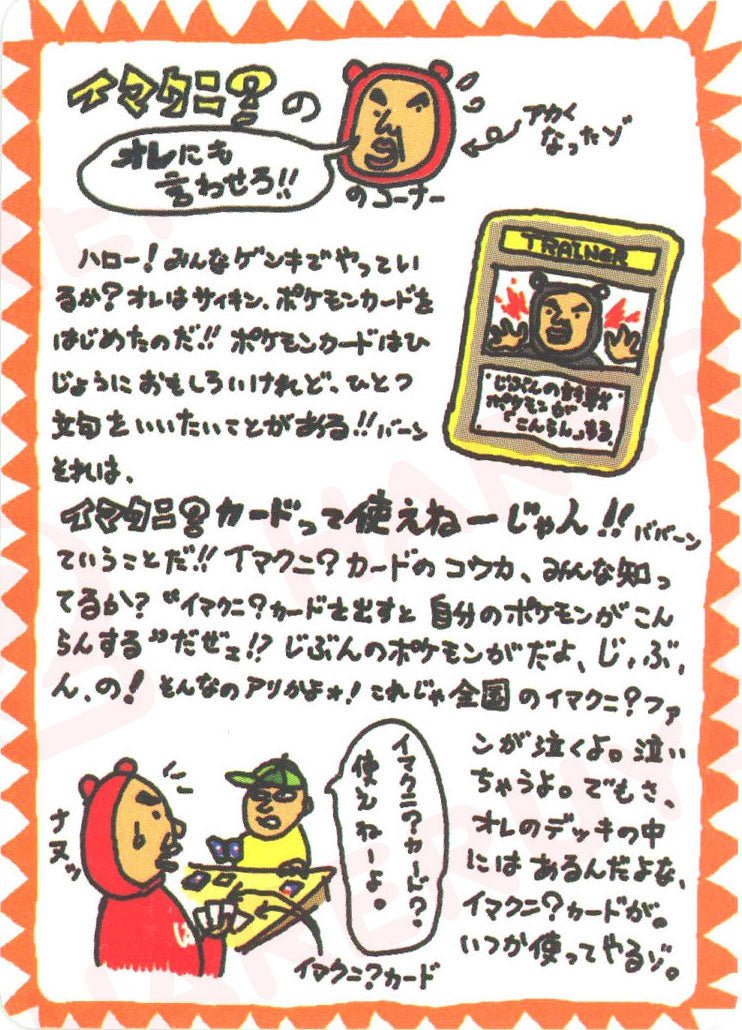 イマクニ?の
オレにも
言わせろ!!
のコーナー
アカく
なったゾ
ハロー!みんなゲンキでやってい
るか?オレはサイキン、ポケモンカードを
はじめたのだ!!ポケモンカードはひ
じょうにおもしろいけれど、ひとつ
文句をいいたいことがある!!バーン
それは、
TRAINER
じぶんの対戦
ポケモンが
「こんらん」する。
イマクニ?カードって使えねーじゃん!!ババーン
ていうことだ!!イマクニ?カードのコウカ、みんな知っ
てるか?"イマクニ?カードを出すと自分のポケモンがこん
らんする"だぜェ!?じぶんのポケモンがだよ、じ、ぶ、
ん、の!そんなのアリかよォ!これじゃ全国のイマクニ?ファ
ンが泣くよ。泣い
ちゃうよ。でもさ、
オレのデッキの中
にはあるんだよな、
イマクニ?カードが。
いつか使ってやるゾ。
ナヌッ
イマクニ?カード?
使えねーよ。
イマクニ?カード